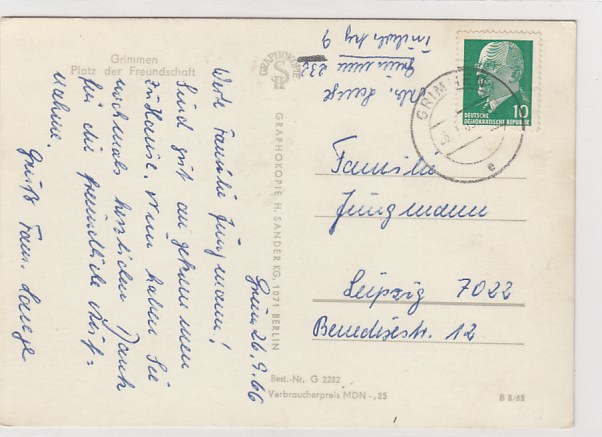 Grimmen
Platz der Freundschaft
Grim. 26.9.66
Werte Familie Jungmann!
Sind gut angekommen
zu Hause. Nun haben Sie
nochmals herzlichen Dank
für die freundliche Auf-
nahme.
Gruß Fam. Lange
GRAPHOKOPIE
GRAPHOKOPIE H. SANDER KG, 1071 BERLIN
Abs. Lange
Grimmen 232
9
GRIMMEN
e
DEUTSCHE
DEMOKRATISCHE REPUBLIK
10
Familie
Jungmann
Leipzig 7022
Benedixstr. 12
Best.-Nr. G 2282
Verbraucherpreis MDN -,25
B 8/65